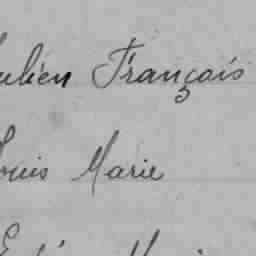 Julien Français
Louis Marie